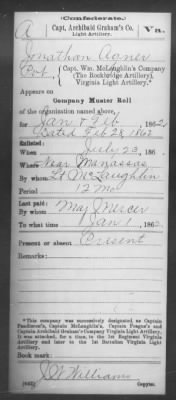 (Confederate.)
A Capt. Archibald Graham's Co. Va.
Light Artillery.
Jonathan Agner
Pvt., Capt. Wm. McLaughlin's Company
(The Rockbridge Artillery),
Virginia Light Artillery.*
Appears on
Company Muster Roll
of the organization named above,
for Jan & Feb, 1862.
Dated Feb 28, 1862
Enlisted:
When July 23, 186
Where Near Manassas
By whom Lt McLaughlin
Period 12 Mo
Last paid:
By whom Maj Mercer
To what time Jan 1, 1862.
Present or absent Present
Remarks:
*This company was successively designated as Captain
Pendleton's, Captain McLaughlin's, Captain Poague's and
Captain Archibald Graham's Company Virginia Light Artillery.
It was attached, for a time, to the 1st Regiment Virginia
Artillery and later to the 1st Battalion Virginia Light
Artillery.
Book mark:
J W Williams
Copyist.